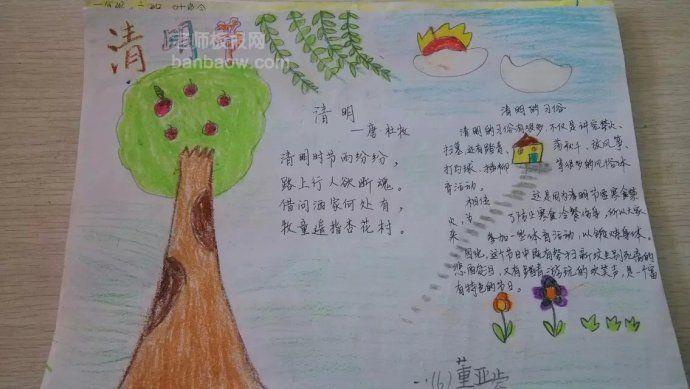 清明节
老师板报网
banbaow.com
清明
唐·杜牧
清明时节雨纷纷，
路上行人欲断魂。
借问酒家何处有，
牧童遥指杏花村。
清明的习俗
清明的习俗有很多，不仅是讲究禁火、
扫墓，还有踏青、荡秋千、放风筝、
打马球、插柳等很多的风俗体
育活动。
相传这是因为清明节要寒食禁
火，为了防止寒食冷餐伤身，所以大家
来参加一些体育活动，以锻炼身体。
因此，这个节日中既有祭扫新坟生别死离的
悲酸泪，又有踏青游玩的欢笑声，是一个富
有特色的节日。
一(6) 董亚